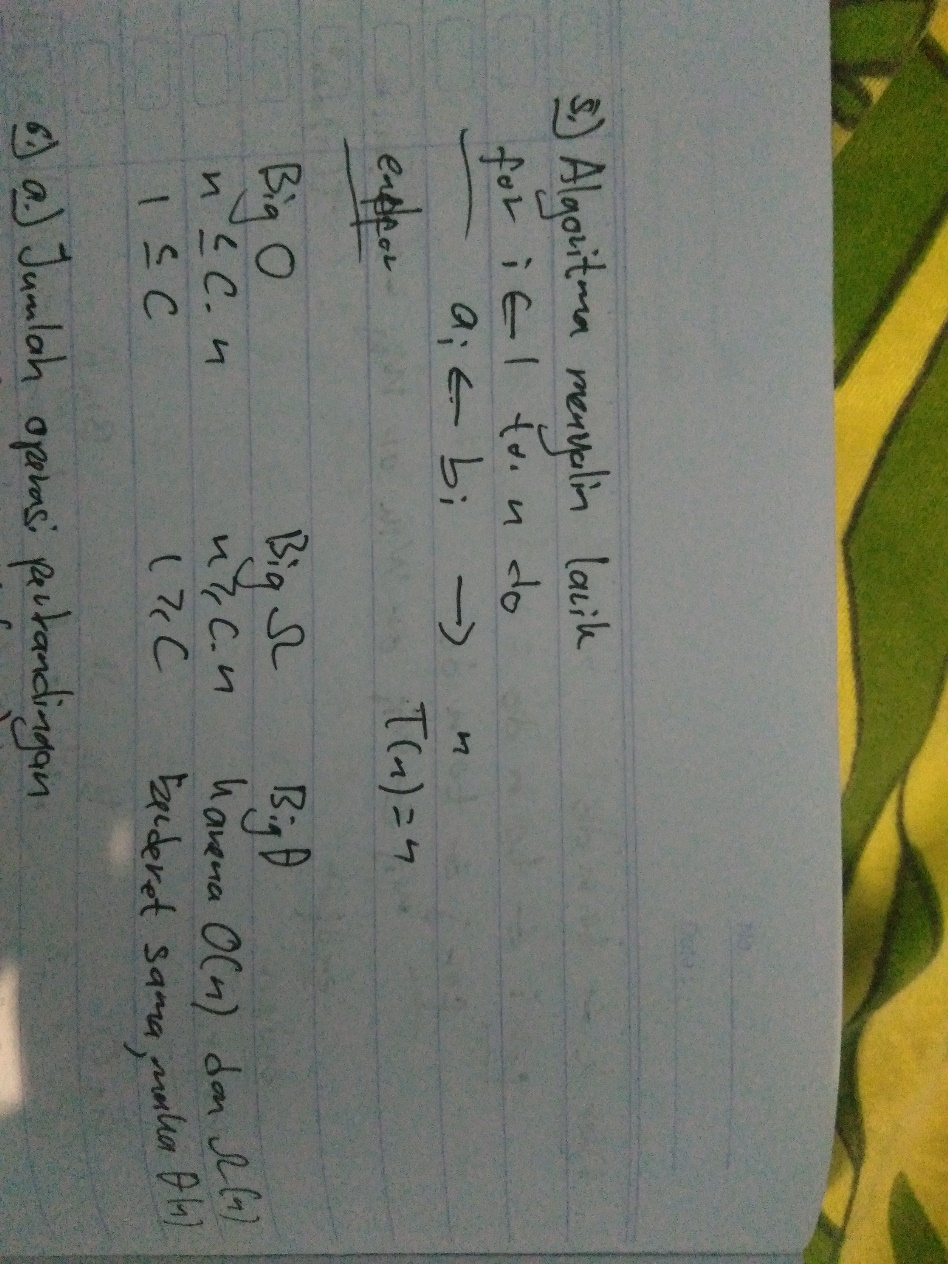 No
Date
5.) Algoritma menyalin larik
for i ← 1 to. n do
ai ← bi → n
endfor T(n) = n
Big O Big Ω Big θ
n ≤ C. n n ≥ C. n karena O(n) dan Ω(n)
1 ≤ C 1 ≥ C berderet sama, maka θ(n)
6.) a.) Jumlah operasi perbandingan